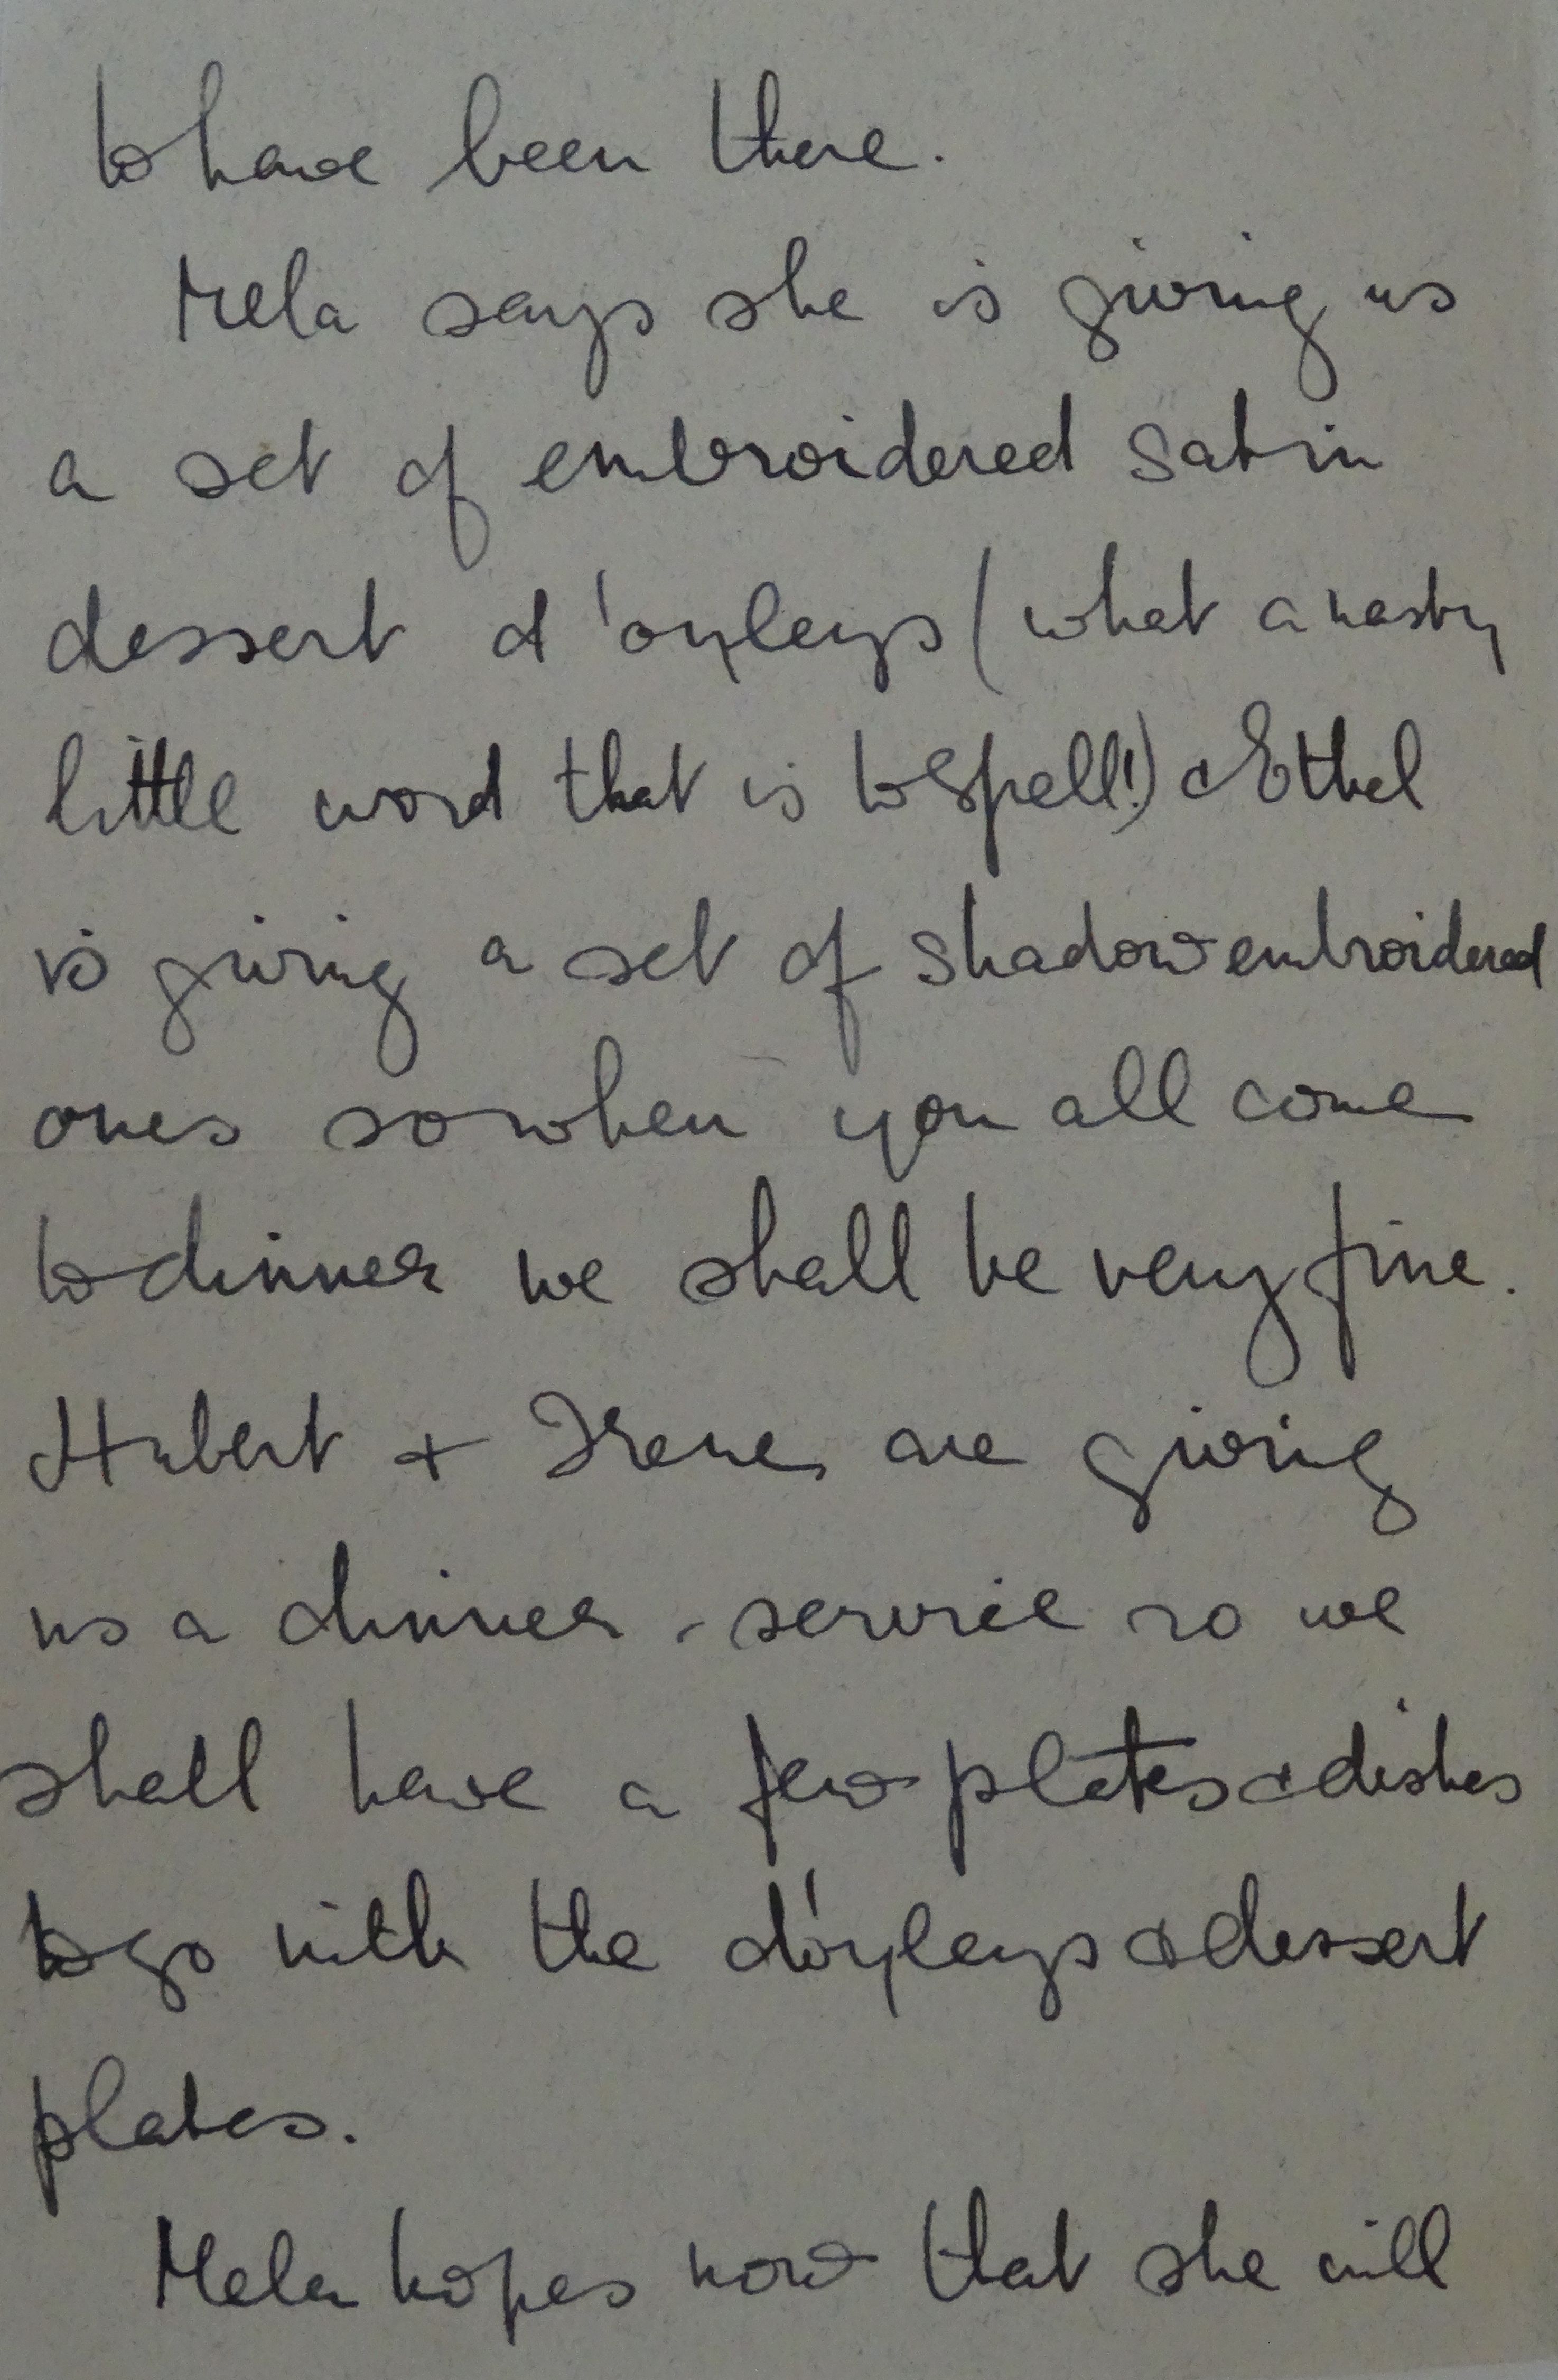 to have been there.
Mela says she is giving us
a set of embroidered satin
dessert d'oyleys (what a nasty
little word that is to spell!) & Ethel
is giving a set of shadow embroidered
ones so when you all come
to dinner we shall be very fine.
Hubert + Irene are giving
us a dinner-service so we
shall have a few plates & dishes
to go with the d'oyleys & dessert
plates.
Mela hopes now that she will